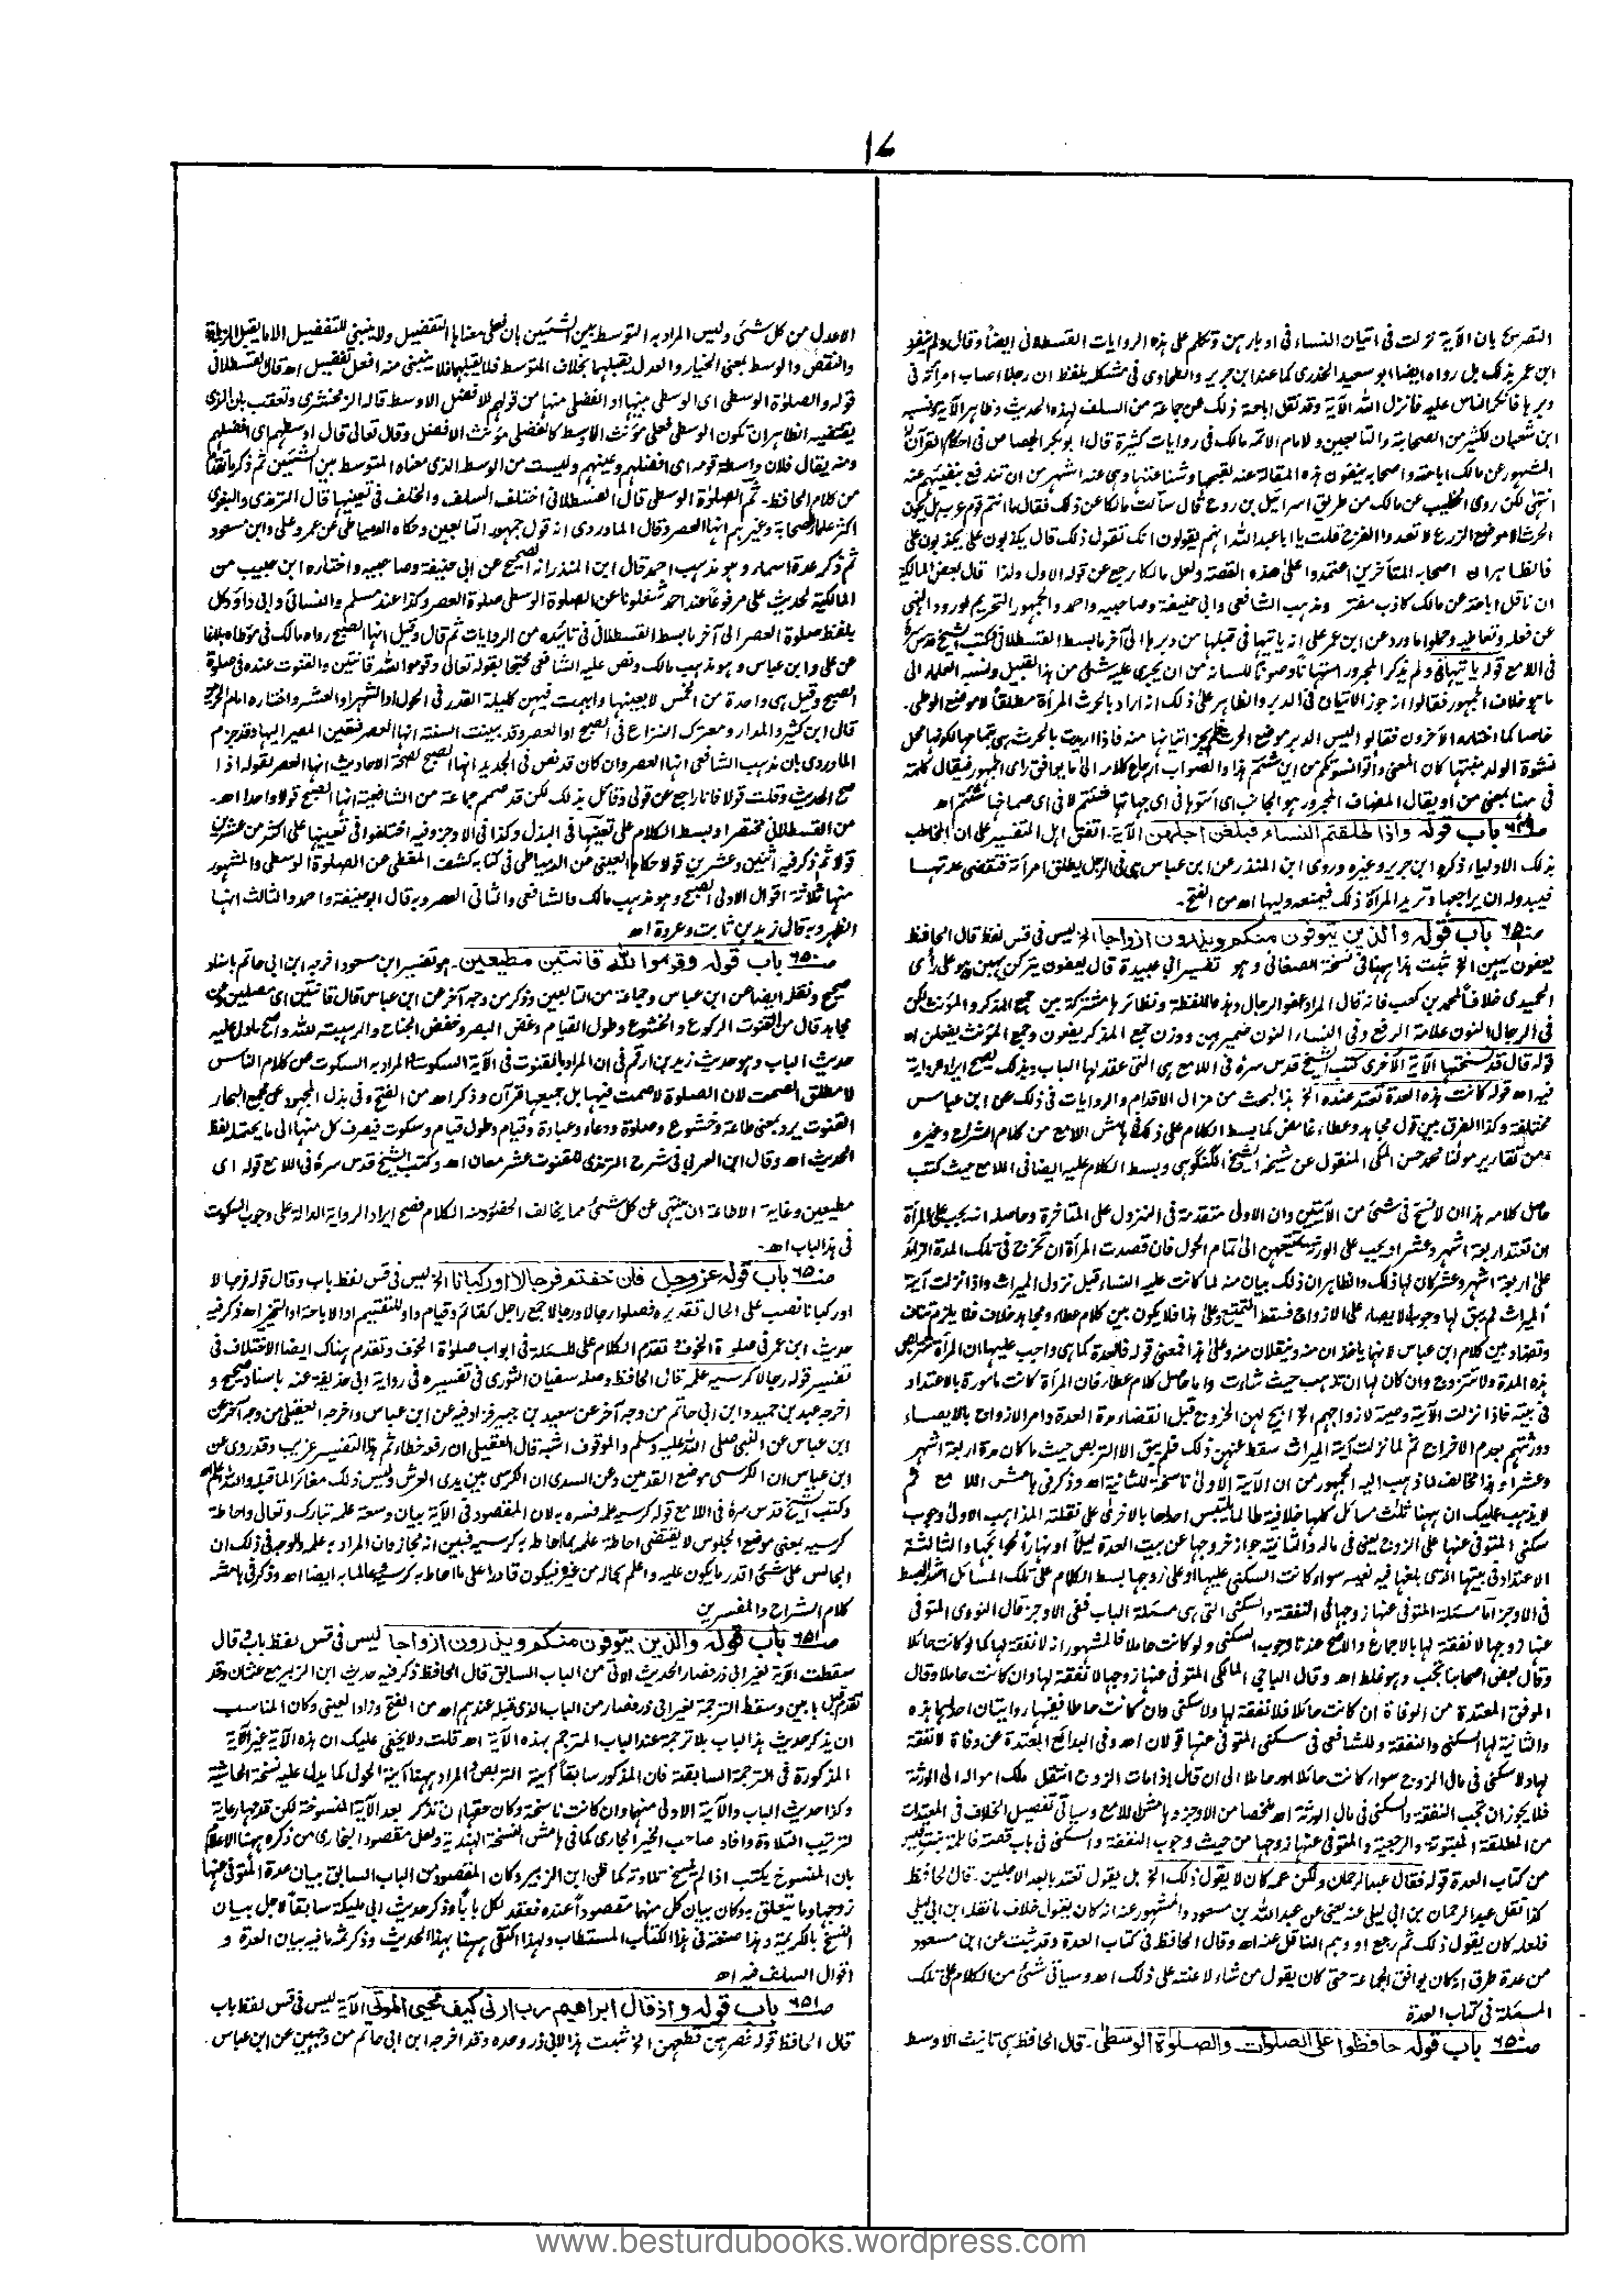 ١٧
التصريح بان الآية نزلت فى اتيان النساء فى ادبارهن وتكلم على هذه الروايات القسطلانى ايضاً وقال ولم ينفرد
ابن عمر بذلك بل رواه ايضا ابو سعيد الخدرى كما عند ابن جرير والطحاوى فى مشكله بلفظ ان رجلا اصاب امرأته فى
دبرها فانكر الناس عليه فانزل الله الآية وقد نقل اباحة ذلك عن جماعة من السلف لهذا الحديث وظاهر الآية ونسبه
ابن شعبان لكثير من الصحابة والتابعين ولامام الائمه مالك فى روايات كثيرة قال ابو بكر الجصاص فى احكام القرآن له
المشهور عن مالك اباحته واصحابه ينفون هذه المقالة عنه لقبحها وشناعتها وهى عنه اشهر من ان تندفع بنفيهم عنه
انتهى لكن روى الخطيب عن مالك من طريق اسرائيل بن روح قال سألت مالكا عن ذلك فقال ما انتم قوم عرب هل يكون
الحرث الا موضع الزرع لا تعدوا الفرج قلت يا ابا عبدالله انهم يقولون انك تقول ذلك قال يكذبون على يكذبون على
فالظاهر ان اصحابه المتأخرين اعتمدوا على هذه القصة ولعل مالكا رجع عن قوله الاول ولذا قال بعض المالكية
ان ناقل اباحته عن مالك كاذب مفتر ومذهب الشافعى وابى حنيفة وصاحبيه واحمد والجمهور التحريم لورود النهى
عن فعله وتعاطيه وحملوا ما ورد عن ابن عمر على انه ياتيها فى قبلها من دبرها الى آخر ما بسط القسطلانى وكتب الشيخ قدس سره
فى اللامع قوله ياتيها فى ولم يذكر المجرور استهجانا وصونا للسانه من ان يجرى عليه شئ من هذا القبيل ونسبه العلماء الى
ما هو خلاف الجمهور فقالوا انه جوز الاتيان فى الدبر والظاهر على ذلك انه اراد بالحرث المرأة مطلقاً لا موضع الوطى.
خاصا كما اختاره الآخرون فقالوا ليس الدبر موضع الحرث فلم يجز اتيانها منه فاذا اريد بالحرث هى بتمامها لكونها محل
فى ههنا بمعنى من او يقال المضاف المجرور هو الجانب اى أتوها فى اى جهاتها شئتم لا فى اى صماخها شئتم اه
صـ٦٤٩ باب قوله واذا طلقتم النساء فبلغن اجلهن الآية. اتفق اهل التفسير على ان المخاطب
بذلك الاولياء ذكره ابن جرير وغيره وروى ابن المنذر عن ابن عباس هى فى الرجل يطلق امرأته فتقضى عدتها
فيبدو له ان يراجعها وتريد المرأة ذلك فيمنعه وليها اه من الفتح.
صـ٦٥٠ باب قوله والذين يتوفون منكم ويذرون ازواجا الخ ليس فى قس لفظ قال الحافظ
يعفون يهبن الخ ثبت هذا ههنا فى نسخة الصغانى وهو تفسير ابى عبيدة قال يعفون يتركن يهبن وهو على رأى
الحميدى خلافاً لمحمد بن كعب فانه قال المراد عفو الرجال وهذه اللفظة ونظائرها مشتركة بين جمع المذكر والمؤنث لكن
فى الرجال النون علامة الرفع وفى النساء النون ضمير لهن ووزن جمع المذكر يفعون وجمع المؤنث يفعلن اه
قوله قال قد نسختها الآية الاخرى كتب الشيخ قدس سره فى اللامع هى التى عقد لها الباب وبذلك يصح ايراد الرواية
فيه اه قوله كانت هذه العدة تعتد عنده الخ هذا البحث من مزال الاقدام والروايات فى ذلك عن ابن عباس
مختلفة وكذا الفرق بين قول مجاهد وعطاء غامض كما بسط الكلام على ذلك فى هامش اللامع من كلام الشراح وغيره
ومن تقارير مولنا محمد حسن المكى المنقول عن شيخه الشيخ الگنگوهى وبسط الكلام عليه ايضا فى اللامع حيث كتب
حاصل كلامه هذا ان لا نسخ فى شئ من الآيتين وان الاولى متقدمة فى النزول على المتاخرة وحاصله انه يجب على المرأة
ان تعتد اربعة اشهر وعشرا ويجب على الورثة سكنيهن الى تمام الحول فان قصدت المرأة ان تخرج فى تلك المدة الزائد
على اربعة اشهر وعشر كان لها ذلك والظاهر ان ذلك بيان منه لما كانت عليه النساء قبل نزول الميراث واذا نزلت آية
الميراث لم يبق لها وجوب الايصاء على الازواج فسقط التمتيع وعلى هذا فلا يكون بين كلام عطاء ومجاهد خلاف فلا يلزم تناف
وتضاد بين كلام ابن عباس لانهما ياخذان منه وينقلان منه وعلى هذا فمعنى قوله فالعدة كما هى واجب عليها ان المرأة تتربص
هذه المدة ولا تتزوج وان كان لها ان تذهب حيث شاءت واما حاصل كلام عطاء فان المرأة كانت مامورة بالاعتداد
فى بيته فاذا نزلت الآية وصية لازواجهم الخ ابيح لهن الخروج قبل انقضاء مدة العدة وامر الازواج بالايصاء
وورثتهم بعدم الاخراج ثم لما نزلت آية الميراث سقط عنهن ذلك فلم يبق الا التربص حيث ما كان مدة اربعة اشهر
وعشرا وهذا مخالف لما ذهب اليه الجمهور من ان الآية الاولى ناسخة للثانية اه وذكر فى هامش اللامع ثم
لا يذهب عليك ان ههنا ثلث مسائل كلها خلافية طالما يلتبس احداها بالاخرى على نقلة المذاهب الاولى وجوب
سكنى المتوفى عنها على الزوج يعنى فى ماله والثانية جواز خروجها عن بيت العدة ليلاً او نهاراً لحوائجها والثالثة
الاعتداد فى بيتها الذى بلغها فيه نعيه سواء كانت السكنى عليها او على زوجها بسط الكلام على تلك المسائل اشد البسط
فى الاوجز اما مسئلة المتوفى عنها زوجها فى النفقة والسكنى التى هى مسئلة الباب ففى الاوجز قال النووى المتوفى
عنها زوجها لا نفقة لها بالاجماع والاصح عندنا وجوب السكنى ولو كانت حاملا فالمشهور انه لا نفقة لها كما لو كانت حائلا
وقال بعض اصحابنا تجب وهو غلط اه وقال الباجى المالكى المتوفى عنها زوجها لا نفقة لها وان كانت حاملا وقال
الموفق المعتدة من الوفاة ان كانت حائلا فلا نفقة لها ولا سكنى وان كانت حاملا ففيها روايتان احداهما هذه
والثانية لها السكنى والنفقة وللشافعى فى سكنى المتوفى عنها قولان اه وفى البدائع المعتدة عن وفاة لا نفقة
لها ولا سكنى فى مال الزوج سواء كانت حائلا او حاملا الى ان قال اذا مات الزوج انتقل ملك امواله الى الورثة
فلا يجوز ان تجب النفقة والسكنى فى مال الورثة اه ملخصا من الاوجز وهامش اللامع وسيأتى تفصيل الخلاف فى المعتدات
من المطلقة المبتوتة والرجعية والمتوفى عنها زوجها من حيث وجوب النفقة والسكنى فى باب قصة فاطمة بنت قيس
من كتاب العدة قوله فقال عبدالرحمان ولكن عمه كان لا يقول ذلك الخ بل يقول تعتد بابعد الاجلين. قال الحافظ
كذا نقل عبدالرحمان بن ابى ليلى عنه يعنى عن عبدالله بن مسعود والمشهور عنه انه كان يقول خلاف ما نقله ابن ابى ليلى
فلعله كان يقول ذلك ثم رجع او وهم الناقل عنه اه وقال الحافظ فى كتاب العدة وقد ثبت عن ابن مسعود
من عدة طرق انه كان يوافق الجماعة حتى كان يقول من شاء لاعنته على ذلك اه وسيأتى شئ من الكلام على تلك
المسئلة فى كتاب العدة
صـ٦٥٠ باب قوله حافظوا على الصلوات والصلوٰة الوسطىٰ. قال الحافظ هى تانيث الاوسط
الاعدل من كل شئ وليس المراد به التوسط بين الشيئين بان فعلى معناها التفضيل ولا ينبنى للتفضيل الا ما يقبل الزيادة
والنقص والوسط بمعنى الخيار والعدل يقبلهما بخلاف المتوسط فلا يقبلهما فلا ينبنى منه افعل تفضيل اه قال القسطلانى
قوله والصلوٰة الوسطى اى الوسطى بينها او الفضلى منها من قولهم للافضل الاوسط قاله الزمخشرى وتعقب بان الذى
يقتضيه الظاهر ان تكون الوسطى فعلى مؤنث الاوسط كالفضلى مؤنث الافضل وقال تعالى قال اوسطهم اى افضلهم
ومنه يقال فلان واسطة قومه اى افضلهم وعينهم وليست من الوسط الذى معناه المتوسط بين الشيئين ثم ذكر ما تقدم
من كلام الحافظ. ثم الصلوٰة الوسطى قال القسطلانى اختلف السلف والخلف فى تعيينها قال الترمذى والبغوى
اكثر علماء الصحابة وغيرهم انها العصر وقال الماوردى انه قول جمهور التابعين وحكاه الدمياطى عن عمر وعلى وابن مسعود
ثم ذكر عدة اسماء وهو مذهب احمد قال ابن المنذر انه الصحيح عن ابى حنيفة وصاحبيه واختاره ابن حبيب من
المالكية لحديث على مرفوعاً عند احمد شغلونا عن الصلوة الوسطى صلوة العصر وكذا عند مسلم والنسائى وابى داود كل
بلفظ صلوة العصر الى آخر ما بسط القسطلانى فى تائيده من الروايات ثم قال وقيل انها الصبح رواه مالك فى موطاه بلاغا
عن على وابن عباس وهو مذهب مالك ونص عليه الشافعى محتجا بقوله تعالى وقوموا لله قانتين والقنوت عنده فى صلوة
الصبح وقيل هى واحدة من الخمس لا بعينها وابهمت فيهن كليلة القدر فى الحول او الشهر او العشر واختاره امام الحرمين
قال ابن كثير والمدار ومعترك النزاع فى الصبح او العصر وقد بينت السنة انها العصر فتعين المصير اليها وقد جزم
الماوردى بان مذهب الشافعى انها العصر وان كان قد نص فى الجديد انها الصبح لصحة الاحاديث انها العصر بقوله اذا
صح الحديث وقلت قولا فانا راجع عن قولى وقائل بذلك لكن قد صمم جماعة من الشافعية انها الصبح قولا واحدا اه.
من القسطلانى مختصرا وبسط الكلام على تعيينها فى البذل وكذا فى الاوجز وفيه اختلفوا فى تعيينها على اكثر من عشرين
قولا ثم ذكر فيه اثنين وعشرين قولا حكاها العينى عن الدمياطى فى كتابه كشف المغطى عن الصلوة الوسطى والمشهور
منها ثلاثة اقوال الاولى الصبح وهو مذهب مالك والشافعى والثانى العصر وبه قال ابوحنيفة واحمد والثالث انها
الظهر وبه قال زيد بن ثابت وعروة اه
صـ٦٥٠ باب قوله وقوموا لله قانتين مطيعين. هو تفسير ابن مسعود اخرجه ابن ابى حاتم باسناد
صحيح ونقله ايضا عن ابن عباس وجماعة من التابعين وذكر من وجه آخر عن ابن عباس قال قانتين اى مصلين وعن
مجاهد قال من القنوت الركوع والخشوع وطول القيام وغض البصر وخفض الجناح والرهبة لله واصح ما دل عليه
حديث الباب وهو حديث زيد بن ارقم فى ان المراد بالقنوت فى الآية السكوت والمراد به السكوت عن كلام الناس
لا مطلق الصمت لان الصلوة لا صمت فيها بل جميعها قرآن وذكر اه من الفتح وفى بذل المجهود عن مجمع البحار
القنوت يرد بمعنى طاعة وخشوع وصلوة ودعاء وعبادة وقيام وطول قيام وسكوت فيصرف كل منها الى ما يحتمله لفظ
الحديث اه وقال ابن العربى فى شرح الترمذى للقنوت عشر معان اه وكتب الشيخ قدس سره فى اللامع قوله اى
مطيعين وغاية الاطاعة ان ينتهى عن كل شئ مما يخالف الحضور منه الكلام فصح ايراد الرواية الدالة على وجوب السكوت
فى هذا الباب اه.
صـ٦٥٠ باب قوله عز وجل فان خفتم فرجالا او ركبانا الخ ليس فى قس لفظ باب وقال قوله فرجالا
او ركبانا نصب على الحال تقديره فصلوا رجالا ورجالا جمع راجل كقائم وقيام واو للتقسيم او الاباحة او التخيير اه ذكر فيه
حديث ابن عمر فى صلوة الخوف تقدم الكلام على المسئلة فى ابواب صلوٰة الخوف وتقدم هناك ايضا الاختلاف فى
تفسير قوله رجالا كرسيه علمه قال الحافظ وصله سفيان الثورى فى تفسيره فى رواية ابى حذيفة عنه باسناد صحيح و
اخرجه عبد بن حميد وابن ابى حاتم من وجه آخر عن سعيد بن جبير فزاد فيه عن ابن عباس واخرجه العقيلى من وجه آخر عن
ابن عباس عن النبى صلى الله عليه وسلم والموقوف اشبه قال العقيلى ان رفعه خطاء ثم هذا التفسير غريب وقد روى عن
ابن عباس ان الكرسى موضع القدمين وعن السدى ان الكرسى بين يدى العرش وليس ذلك مغائرا لما قبله والله اعلم اه
وكتب الشيخ قدس سره فى اللامع قوله كرسيه علمه فسره به لان المقصود فى الآية بيان وسعة علمه تبارك وتعالى واحاطة
كرسيه بمعنى موضع الجلوس لا يقتضى احاطة علمه بما احاط به كرسيه فبين انه مجاز وان المراد به علمه والوجه فى ذلك ان
الجالس على شئ اقدر ما يكون عليه واعلم بحاله من غيره فيكون قادرا على ما احاط به كرسيه وعالما به ايضا اه وذكر فى هامشه
كلام الشراح والمفسرين
صـ٦٥١ باب قوله والذين يتوفون منكم ويذرون ازواجا ليس فى قس لفظ باب وقال
سقطت الآية لغير ابى ذر فصار الحديث الآتى من الباب السابق قال الحافظ ذكر فيه حديث ابن الزبير مع عثمان وقد
تقدم قبل بابين وسقطت الترجمة لغير ابى ذر فصار من الباب الذى قبله عندهم اه من الفتح وزاد العينى وكان المناسب
ان يذكر حديث هذا الباب بلا ترجمة عند الباب المترجم بهذه الآية اه قلت ولا يخفى عليك ان هذه الآية غير الآية
المذكورة فى الترجمة السابقة فان المذكور سابقا آية التربص والمراد ههنا آية الحول كما يدل عليه نسخة الحاشية
وكذا حديث الباب والآية الاولى منهما وان كانت ناسخة وكان حقها ان تذكر بعد الآية المنسوخة لكن قدمها رعاية
لترتيب التلاوة وافاد صاحب الخير الجارى كما فى هامش النسخة الهندية ولعل مقصود البخارى من ذكره ههنا الاعلام
بان المنسوخ يكتب اذا لم ينسخ تلاوته كما ظن ابن الزبير وكان المقصود من الباب السابق بيان عدة المتوفى عنها
زوجها وما يتعلق به وكان بيان كل منهما مقصوداً عنده فعقد لكل باباً وذكر حديث ابن ابى مليكة سابقاً لاجل بيان
النسخ بالكريمة وهذا صنعته فى هذا الكتاب المستطاب ولهذا اكتفى ههنا بهذا الحديث وذكر ثمه ما فيه بيان العدة و
اقوال السلف فيه اه
صـ٦٥١ باب قوله واذ قال ابراهيم رب ارنى كيف تحيى الموتى الآية ليس فى قس لفظ باب
قال الحافظ قوله فصرهن قطعهن الخ ثبت هذا لابى ذر وحده وقد اخرجه ابن ابى حاتم من وجهين عن ابن عباس.
www.besturdubooks.wordpress.com